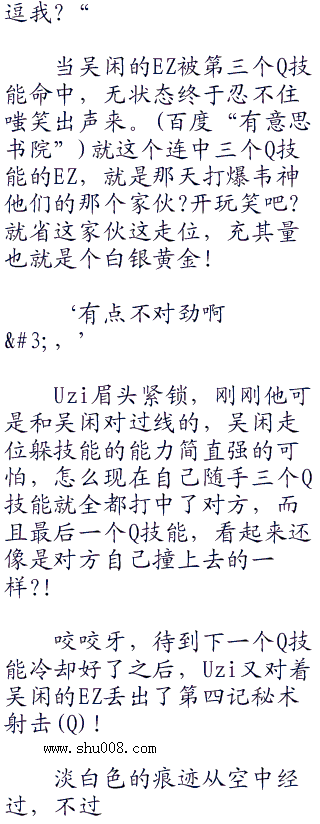 逗我？“
当吴闲的EZ被第三个Q技
能命中，无状态终于忍不住
嗤笑出声来。(百度“有意思
书院”)就这个连中三个Q技
能的EZ，就是那天打爆韦神
他们的那个家伙?开玩笑吧?
就省这家伙这走位，充其量
也就是个白银黄金!
‘有点不对劲啊
&#3;，’
Uzi眉头紧锁，刚刚他可
是和吴闲对过线的，吴闲走
位躲技能的能力简直强的可
怕，怎么现在自己随手三个Q
技能就全都打中了对方，而
且最后一个Q技能，看起来还
像是对方自己撞上去的一
样?!
咬咬牙，待到下一个Q技
能冷却好了之后，Uzi又对着
吴闲的EZ丢出了第四记秘术
射击(Q)!
www.shu008.com
淡白色的痕迹从空中经
过，不过